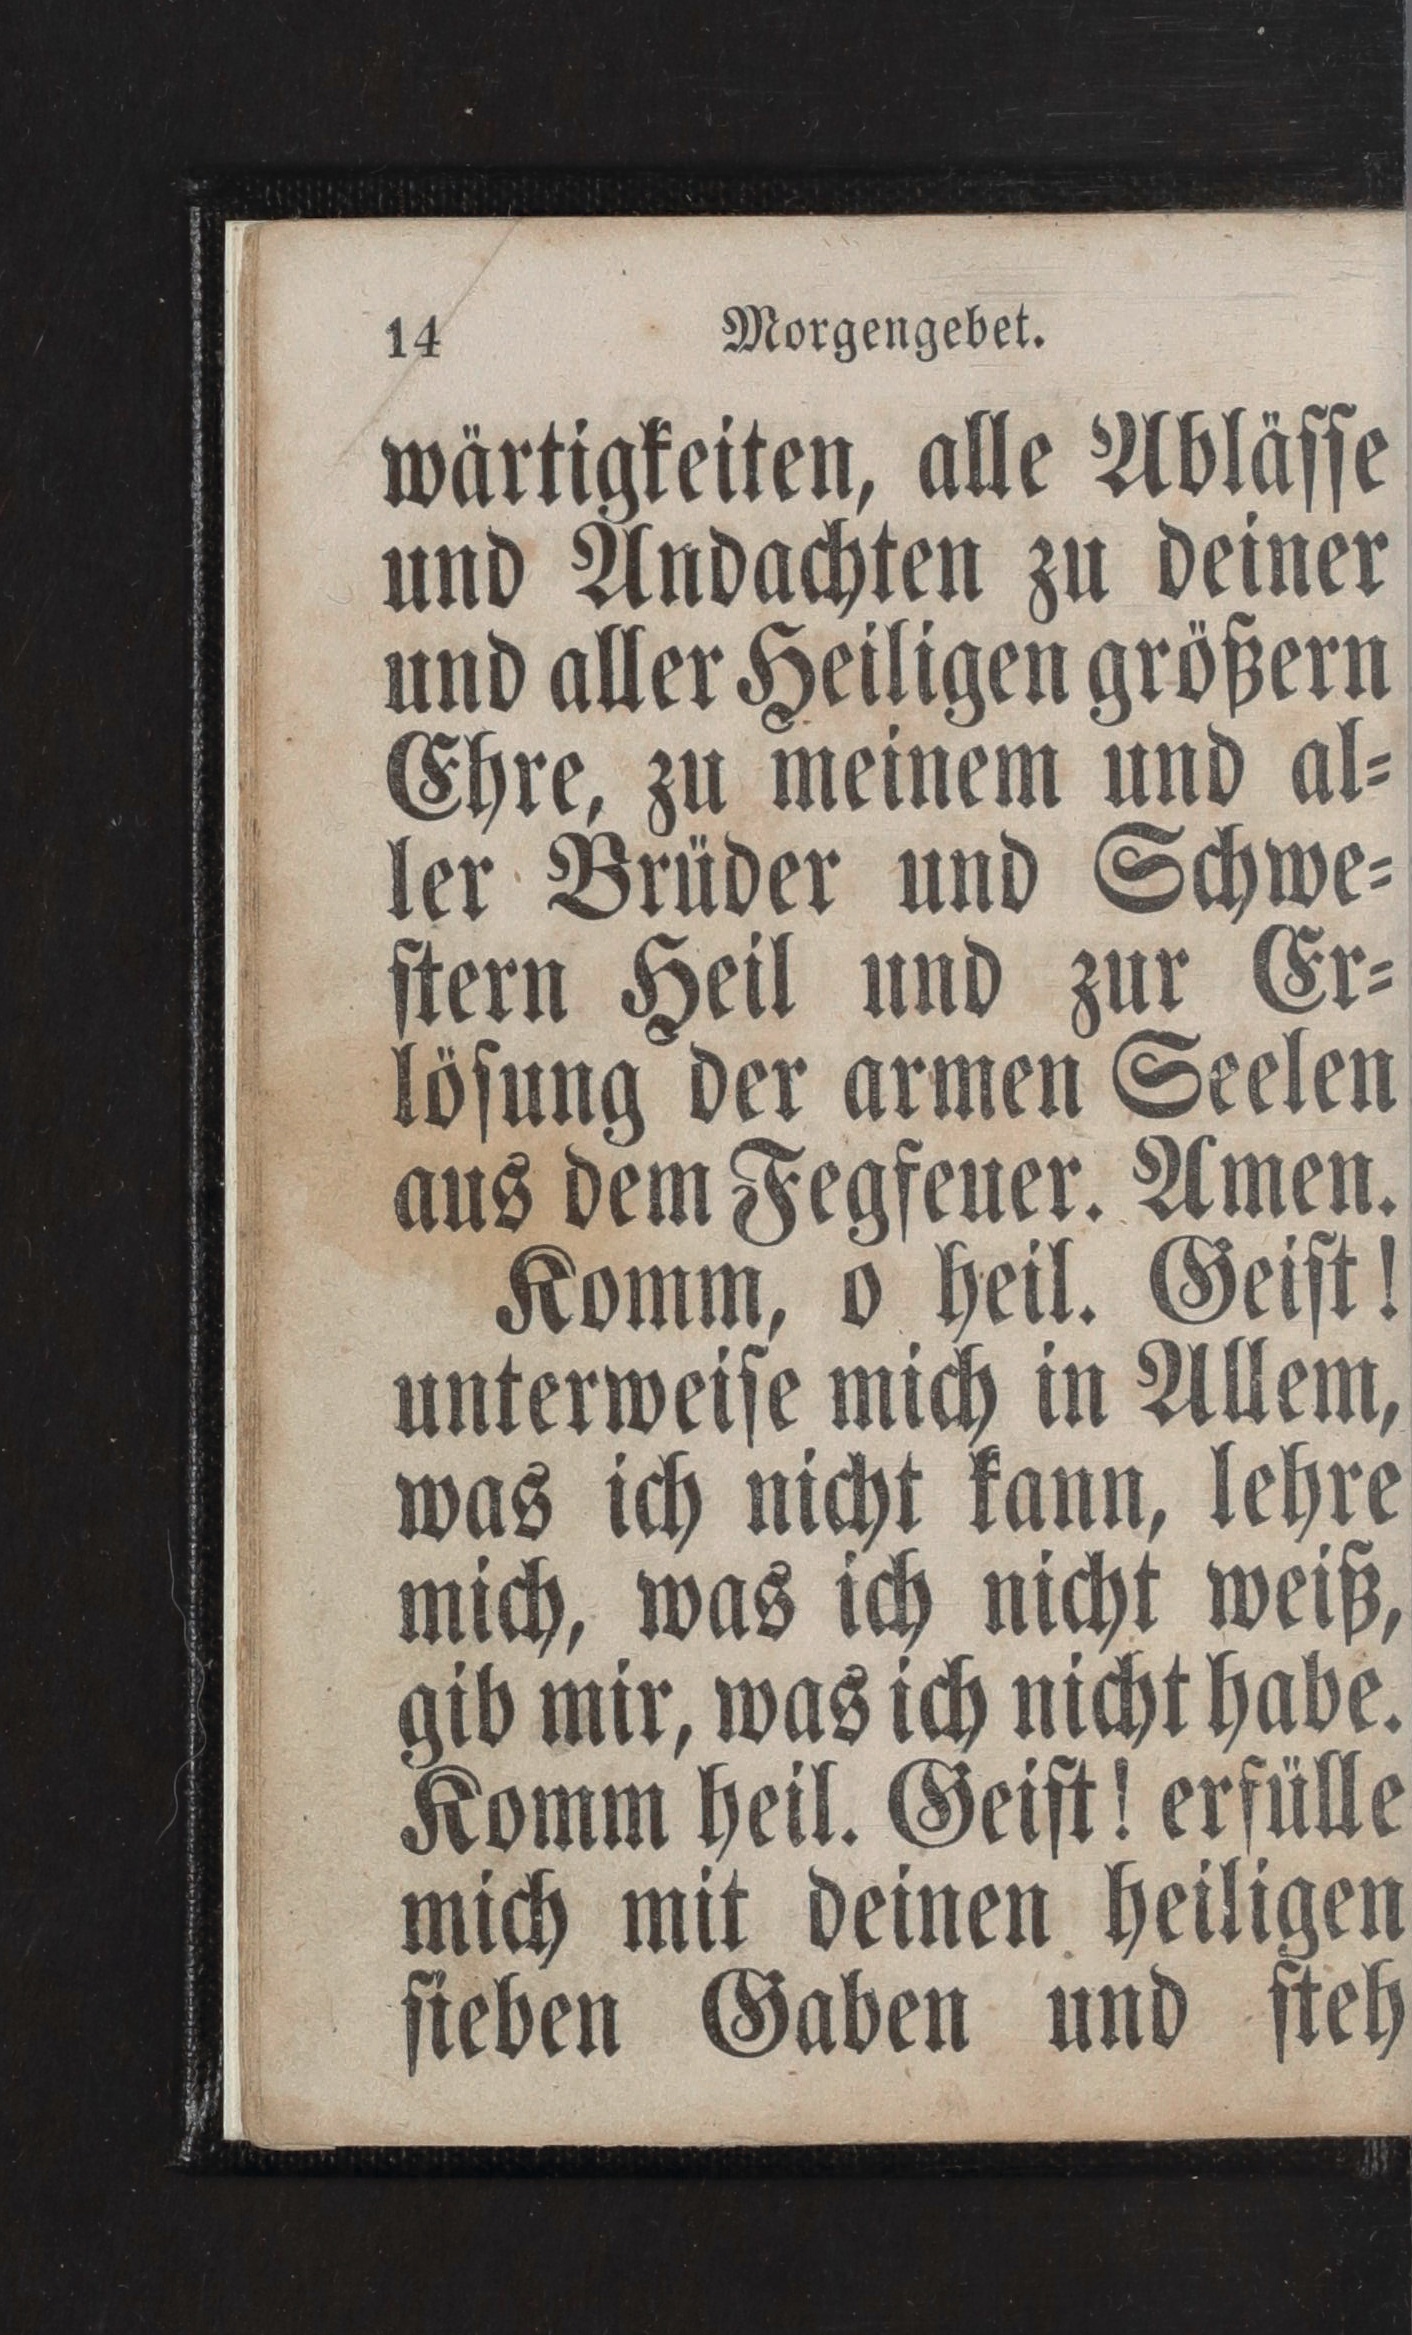 14 Morgengebet.
wärtigkeiten, alle Abläſſe
und Andachten zu deiner
und aller Heiligen größern
Ehre, zu meinem und al⸗
ler Brüder und Schwe⸗
ſtern Heil und zur Er⸗
löſung der armen Seelen
aus dem Fegfeuer. Amen.
Komm, o heil. Geiſt!
unterweiſe mich in Allem,
was ich nicht kann, lehre
mich, was ich nicht weiß,
gib mir, was ich nicht habe.
Komm heil. Geiſt! erfülle
mich mit deinen heiligen
ſieben Gaben und ſteh